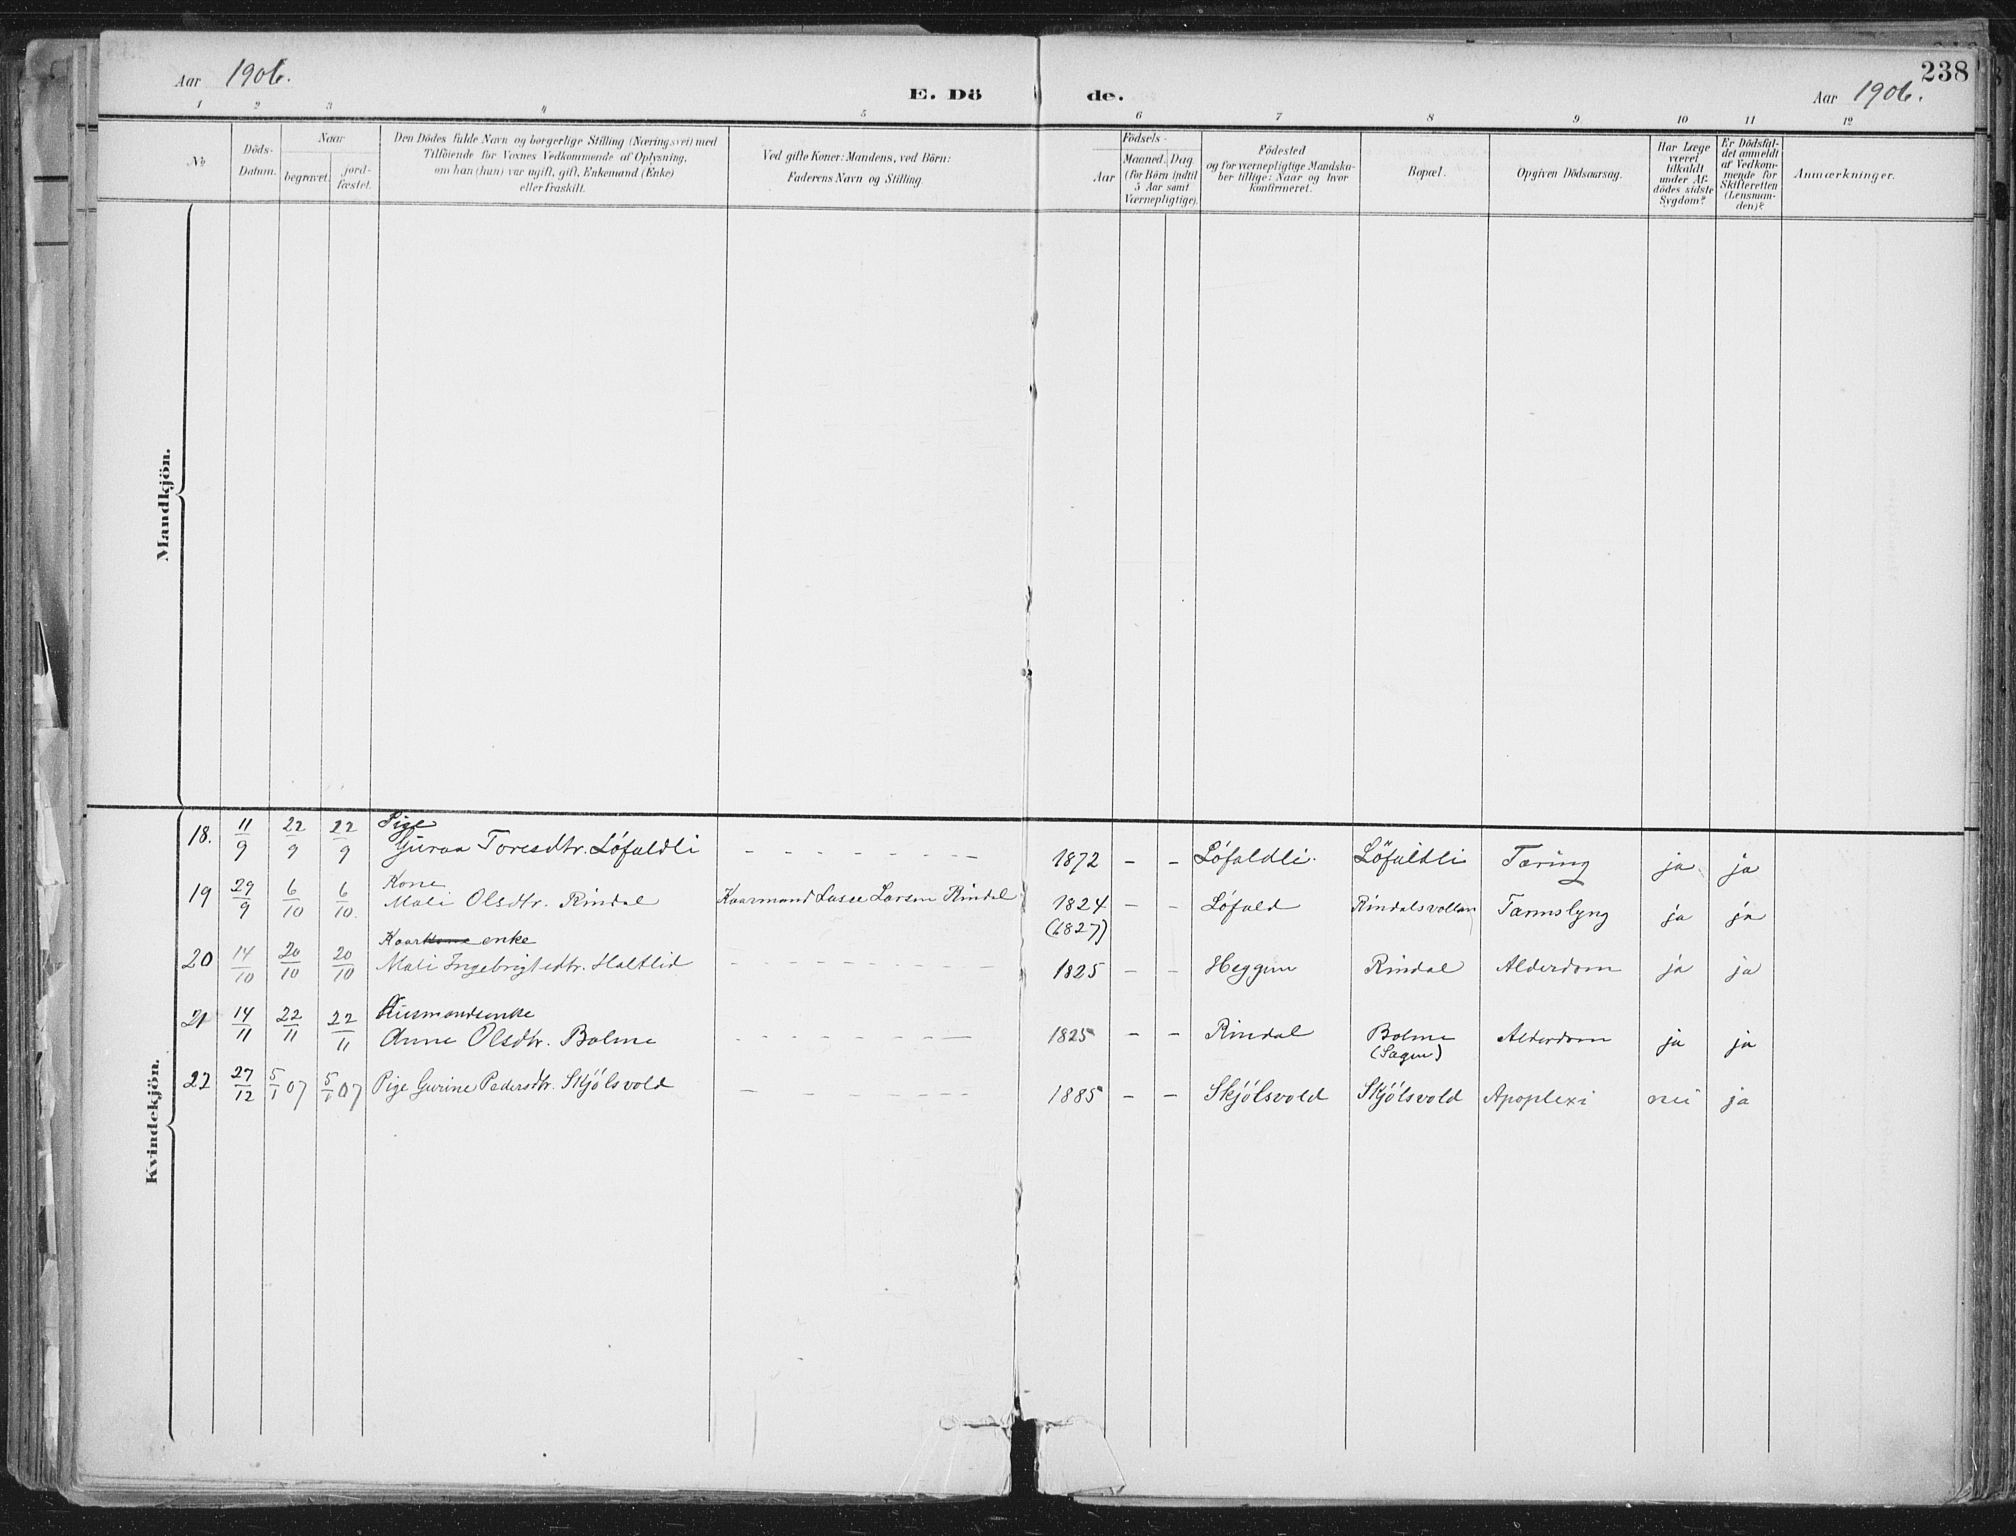 238
Aar 1906.
E. Dö de.
Aar 1906.
1 2 3 4 5 6 7 8 9 10 11 12
No
Döds-
Datum.
Naar
begravet.
jord-
fæstet.
Den Dödes fulde Navn og borgerlige Stilling (Næringsvei) med
Tilföiende for Voxnes Vedkommende af Oplysning,
om han (hun) var ugift, gift, Enkemand (Enke)
eller fraskilt.
Ved gifte Koner: Mandens, ved Börn:
Faderens Navn og Stilling.
Födsels-
Aar
Maaned. Dag.
(for Börn indtil
5 Aar samt
Værnepligtige).
Födested
og for værnepligtige Mandska-
ber tillige: Naar og hvor
konfirmeret.
Bopæl.
Opgiven Dödsaarsag.
Har Læge
været
tilkaldt
under Af-
dödes sidste
Sygdom?
Er Dödsfal-
det anmeldt
af Vedkom-
mende for
Skifteretten
(Lensman-
den)?
Anmærkninger.
Mandkjön.
Kvindekjön.
Pige
18. 11/9 22/9 22/9 Guroa Toresdtr. Löfaldli - - - - - - - - 1872 - - Löfaldli. Löfaldli Tæring ja ja
Kone
19 29/9 6/10 6/10. Mali Olsdtr. Rindal Kaarmand Lasse Larsen Rindal 1824 - - Löfald Rindalsvollan Tarmslyng ja ja
(1827)
Kaarkone enke
20 14/10 20/10 20/10 Mali Ingebrigtsdtr. Haltlid - - - - - - - - 1825 - - Heggem Rindal Alderdom ja ja
Husmandsenke
21 14/11 22/11 22/11 Anne Olsdtr. Bolme - - - - - - - - 1825 - - Rindal Bolme Alderdom ja ja
(Sagen)
22 27/12 5/1 07 5/1 07 Pige Gurine Pedersdtr. Skjölsvold - - - - - - - 1885 - - Skjölsvold Skjölsvold Apoplexi nei ja